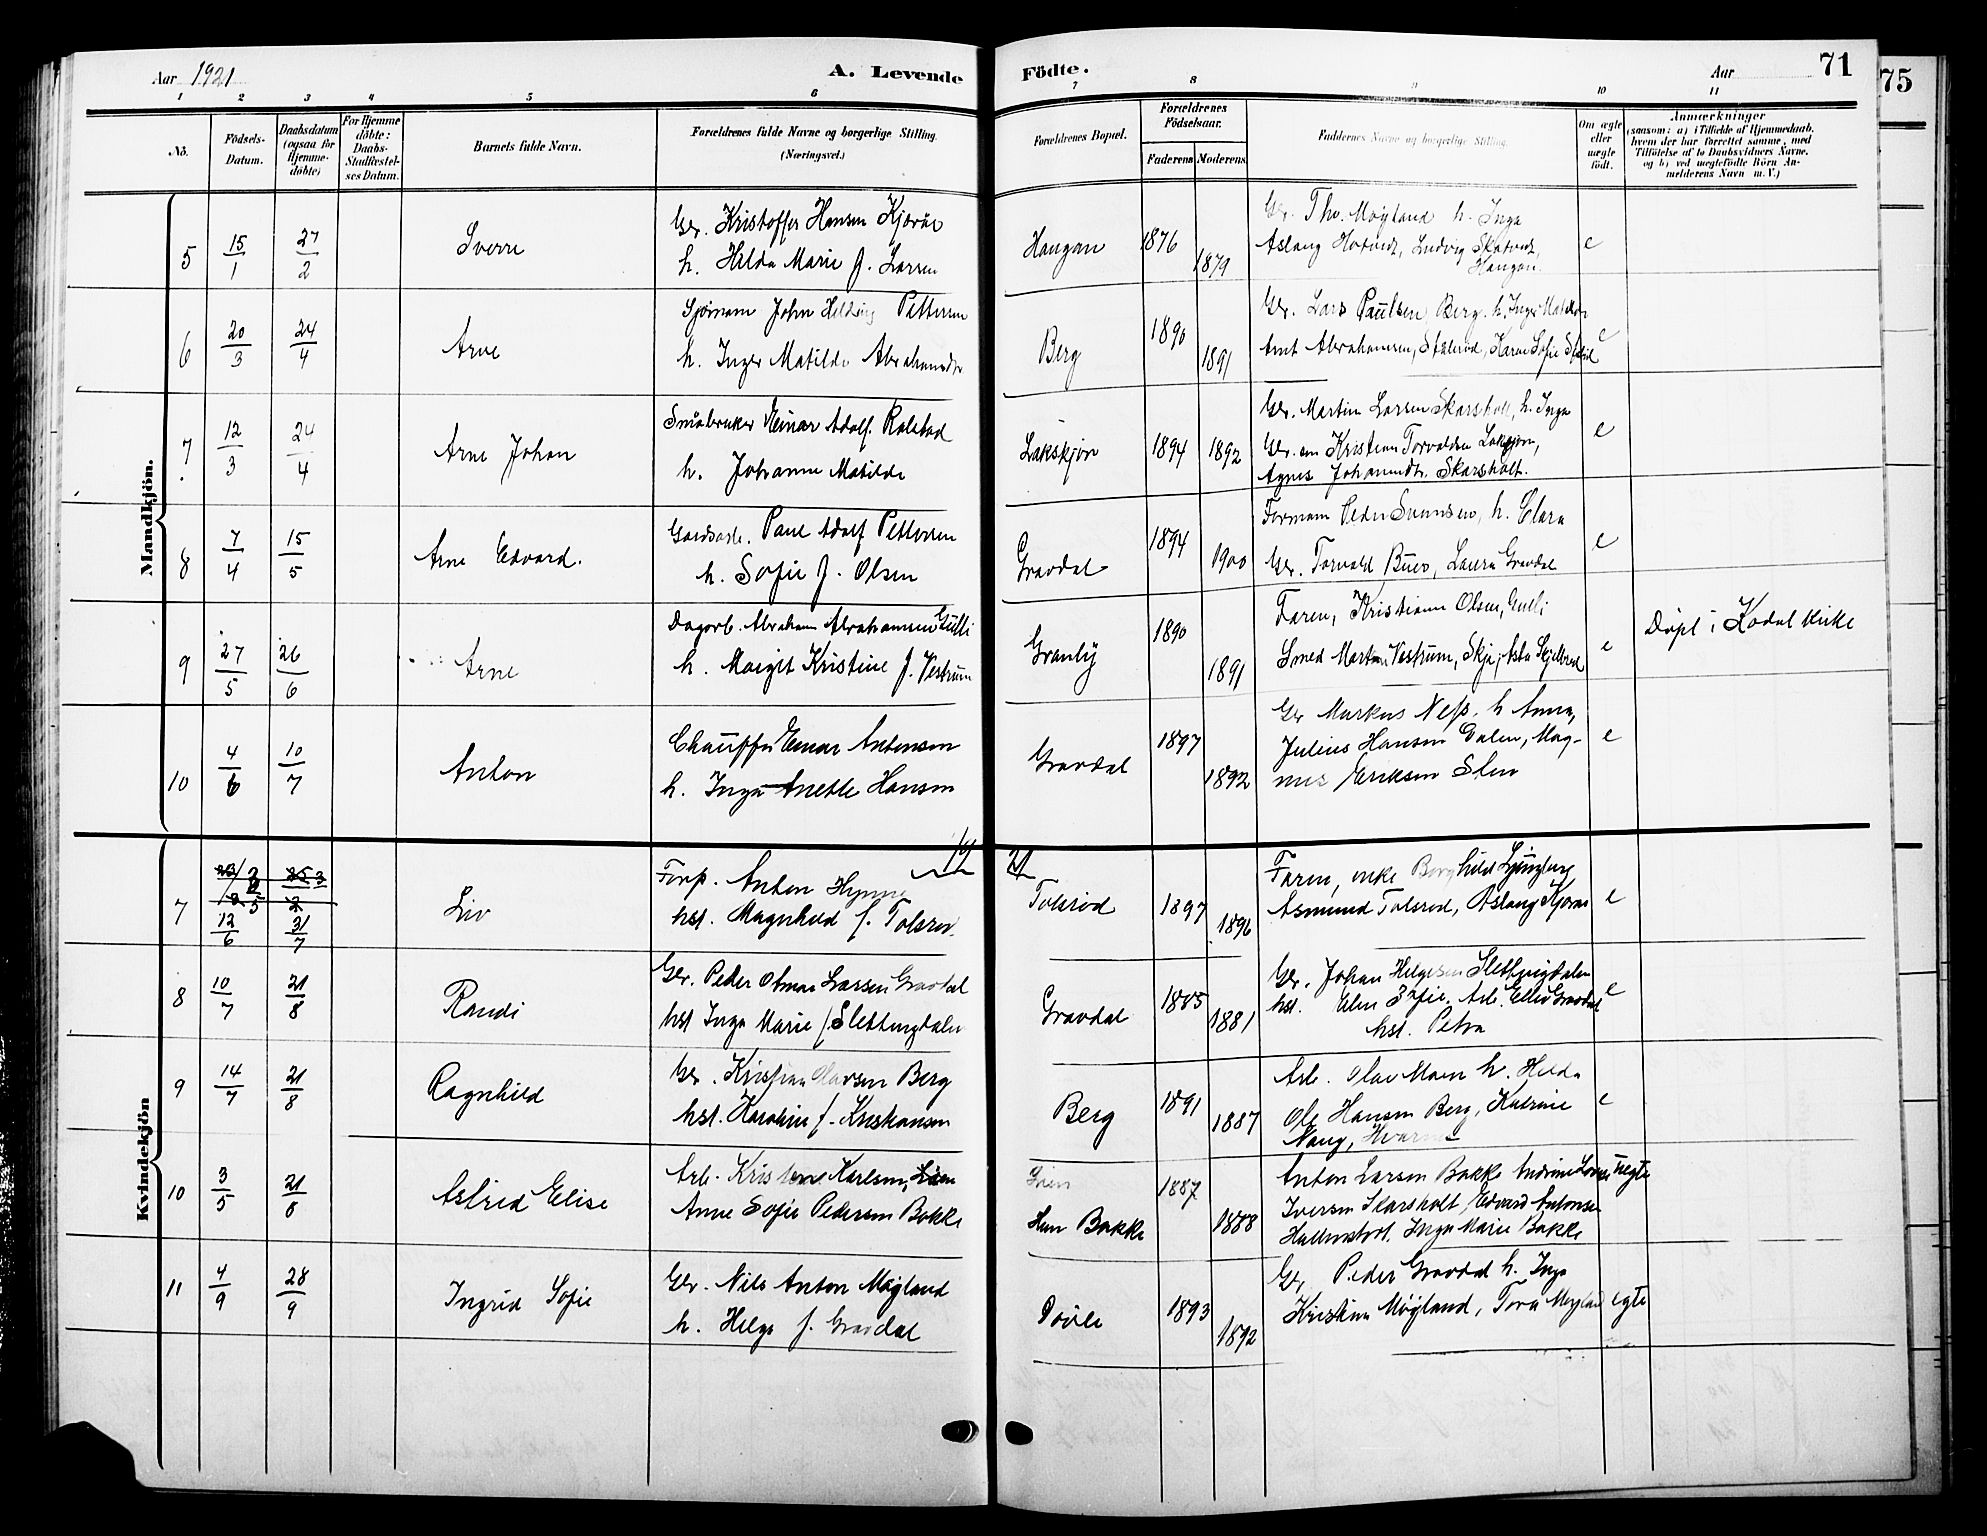 Aar 1921
A. Levende
Födte.
Aar
71
75
1 2 3 4 5 6 7 8 9 10 11
No.
Födsels-
Datum.
Daabsdatum
(ogsaa for
Hjemme-
döbte)
For Hjemme
döbte:
Daabs-
Stadfæstel-
ses Datum.
Barnets fulde Navn.
Forældrenes fulde Navne og borgerlige Stilling.
(Næringsvei.)
Forældrenes Bopæl.
Forældrenes
Födselsaar.
Faderens Moderens
Faddernes Navne og borgerlige Stilling.
Om ægte
eller
uægte
födt.
Anmærkninger
(saasom: a) i Tilfælde af Hjemmedaab,
hvem der har forrettet samme, med
Tilföielse af to Daabsvidners Navne,
og b) ved uegtefödte Börn An-
melderens Navn m. V.)
Mandkjön.
5 15/1 27/2 Sverre
Gr. Kristoffer Hansen Kjøraas
h. Hilda Marie f. Larsen
Haugan 1876 1879
Gr. Th. Møyland h. Inga
Aslaug Hotvedt, Ludvig Skatvedt,
Haugan. e
6 20/3 24/4 Arne
Sjømann John Hilding Pettersen
h. Inger Matilde Abrahamsdtr
Berg 1890 1891
Gr. Lars Paulsen Berg. h. Inger Matilde
Arnt Abrahamsen, Stålerød, Karen Sofie e
7 12/3 24/4 Arne Johan
Småbruker Einar Adolf. Rolstad
h. Johanne Matilde
Lakskjøn 1894 1892
Gr. Martin Larsen Skarsholt, h. Inga
Gr. Kristian Torvaldsen Lakskjøn,
Agnes Johannsdtr. Skarsholt. e
8 7/4 15/5 Arne Edvard.
Gaardsarb. Paul Adolf Pettersen
h. Sofie f. Olsen
Gravdal 1894 1900
Formann Peder Svensen, h. Clara
Gr. Torvald Buer, Laura Gravdal e
9 27/5 26/6 Arne
Dagarb. Abraham Abrahamsen Gulli
h. Margit Kristine f. Vestrum
Granly 1890 1891
Faren, Kristiane Olsen, Gulli
Smed Martin Vestrum, Skje, Asta Skjelbred e
Døpt i Kodal kirke
10 4/6 10/7 Anton
Chauffør Einar Antonsen
h. Inga Anette Hansen
Gravdal 1897 1892
Gr Markus Ness. h Anna,
Julius Hansen Dalen, Mag-
nus Eriksen Sten e
Kvindekjön
19 21
7 12/6 31/7 Liv
Forp. Anton Hynne
hst. Magnhild f. Tolsrød.
Tolsrød 1897 1896
Faren, enke Borghild Ljungberg
Asmund Tolsrød, Aslaug Kjøraas e
8 10/7 21/8 Randi
Gr. Peder Otmar Larsen Gravdal
hst Inga Marie f. Slettingdalen
Gravdal 1885 1881
Gr. Johan Helgesen Slettingdalen
hst. Elen Sofie. Arb. Ellev Gravdal
hst. Petra e
9 14/7 21/8 Ragnhild
Gr. Kristian Olavsen Berg
hst. Karoline f. Kristiansen
Berg 1891 1887
Arb. Olav Moen h. Hilda
Ole Hansen Berg, Katrine
Naug, Hvarnes e
10 3/5 21/8 Astrid Elise
Arb. Kristian Karlsen, Lien
Anne Sofie Pedersen Bakke
Lien
Hun Bakke 1887 1888
Anton Larsen Bakke Andrine Lovise
Iversen Skarsholt, Edvard Antonsen
Hallenstvet. Inga Marie Bakke uegte
11 4/9 28/9 Ingrid Sofie
Gr. Nils Anton Møyland
h. Helga f. Gravdal
Døvle 1893 1892
Gr. Peder Gravdal h. Inga
Kristian Møyland, Tora Møyland egte